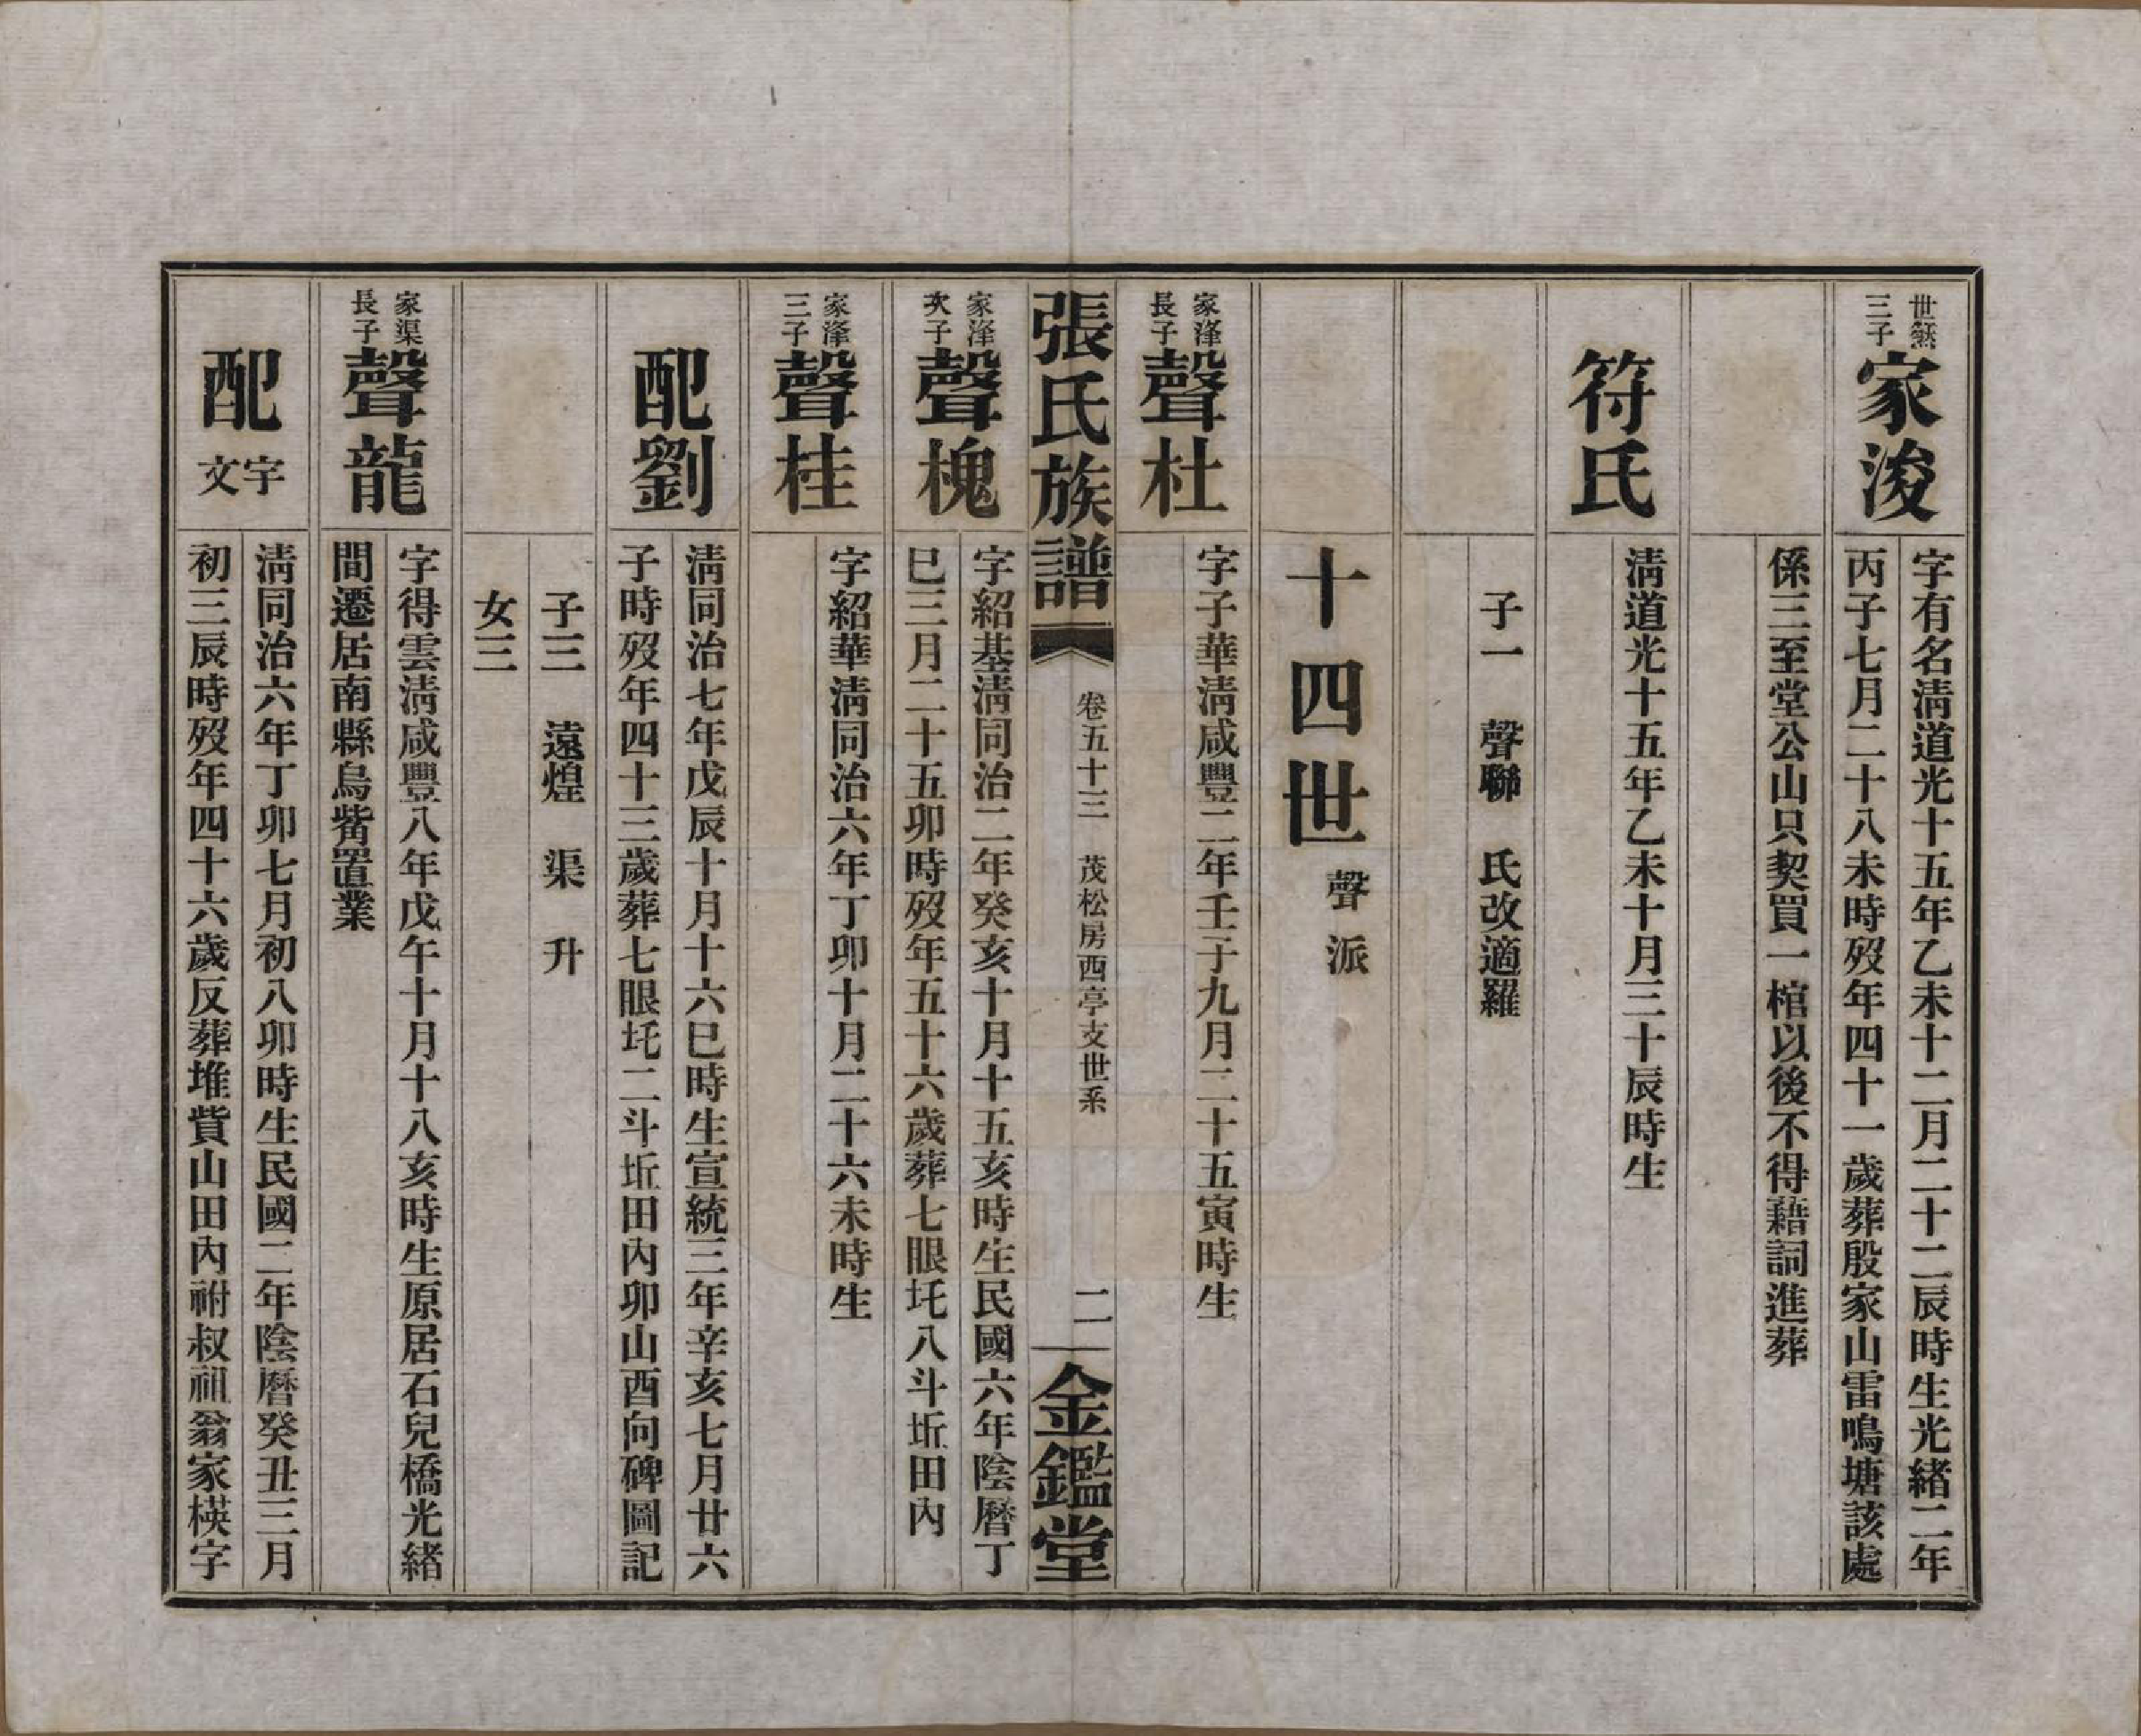 世
三子
家浚
字有名淸道光十五年乙未十二月二十二辰時生光緒二年
丙子七月二十八未時歿年四十一歲葬殷家山雷鳴塘該處
係三至堂公山只契買一棺以後不得藉詞進葬
符氏
淸道光十五年乙未十月三十辰時生
子一　聲聯　氏改適羅
十四世 聲派
家漨
長子
聲杜
字子華淸咸豐二年壬子九月二十五寅時生
張氏族譜
卷五十三　茂松房西亭支世系
二
金鑑堂
家漨
次子
聲槐
字紹基淸同治二年癸亥十月十五亥時生民國六年陰曆丁
巳三月二十五卯時歿年五十六歲葬七眼圫八斗坵田內
家漨
三子
聲桂
字紹華淸同治六年丁卯十月二十六未時生
配劉
淸同治七年戊辰十月十六巳時生宣統三年辛亥七月廿六
子時歿年四十三歲葬七眼圫二斗坵田內卯山酉向碑圖記
子三　遠煌　渠　升
女三
家渠
長子
聲龍
字得雲淸咸豐八年戊午十月十八亥時生原居石兒橋光緒
間遷居南縣烏嘴置業
配文宇
淸同治六年丁卯七月初八卯時生民國二年陰曆癸丑三月
初三辰時歿年四十六歲反葬堆貲山田內祔叔祖翁家楧字